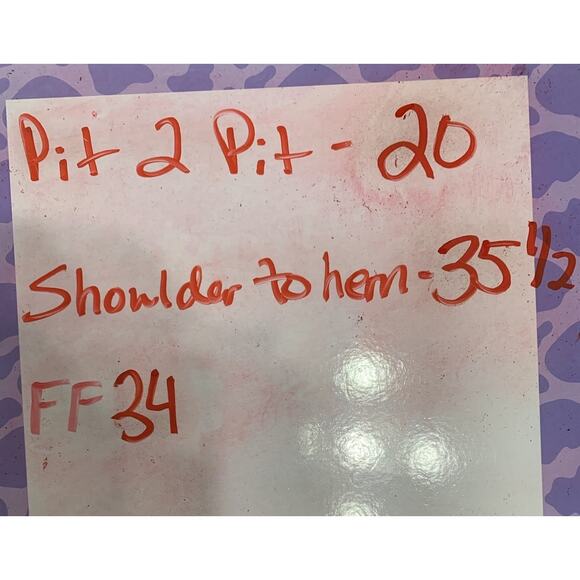 Pit 2 Pit - 20
Shoulder to hem - 35 1/2
FF 34